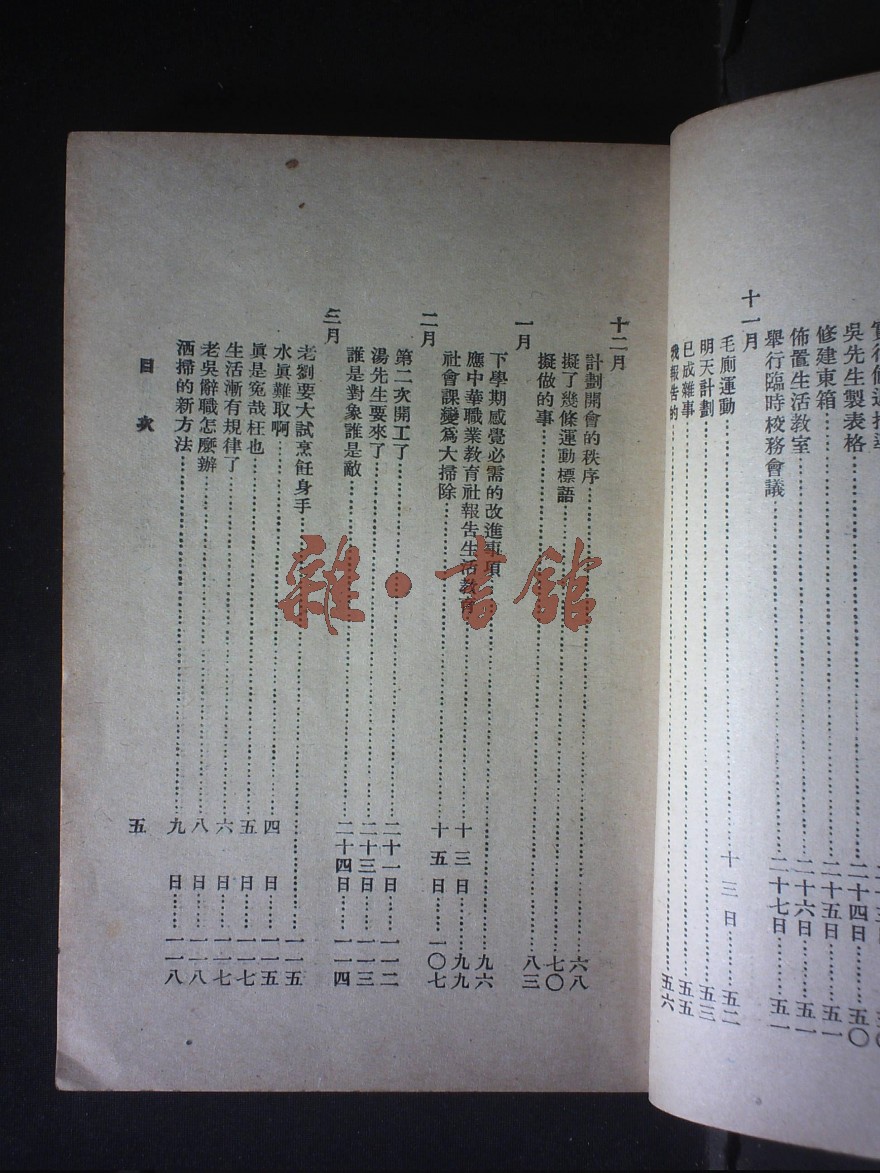 吳先生製表格……二十四日……五〇
修建東箱……二十五日……五一
佈置生活教室……二十六日……五一
舉行臨時校務會議……二十七日……五一
十一月
毛廁運動……十三日……五二
明天計劃……五三
已成雜事……五五
我報告的……五六
十二月
計劃開會的秩序……六八
擬了幾條運動標語……七〇
一月
擬做的事……八三
下學期感覺必需的改進事項……九六
應中華職業教育社報告生活教育……十三日……九九
社會課變爲大掃除……十五日……一〇七
二月
第二次開工了……二十一日……一一二
湯先生要來了……二十三日……一一三
誰是對象誰是敵……二十四日……一一四
三月
老劉要大試烹飪身手……一一五
水眞難取啊……四日……一一五
眞是冤哉枉也……五日……一一七
生活漸有規律了……六日……一一七
老吳辭職怎麽辦……八日……一一八
洒掃的新方法……九日……一一八
目次 五
雜·書館